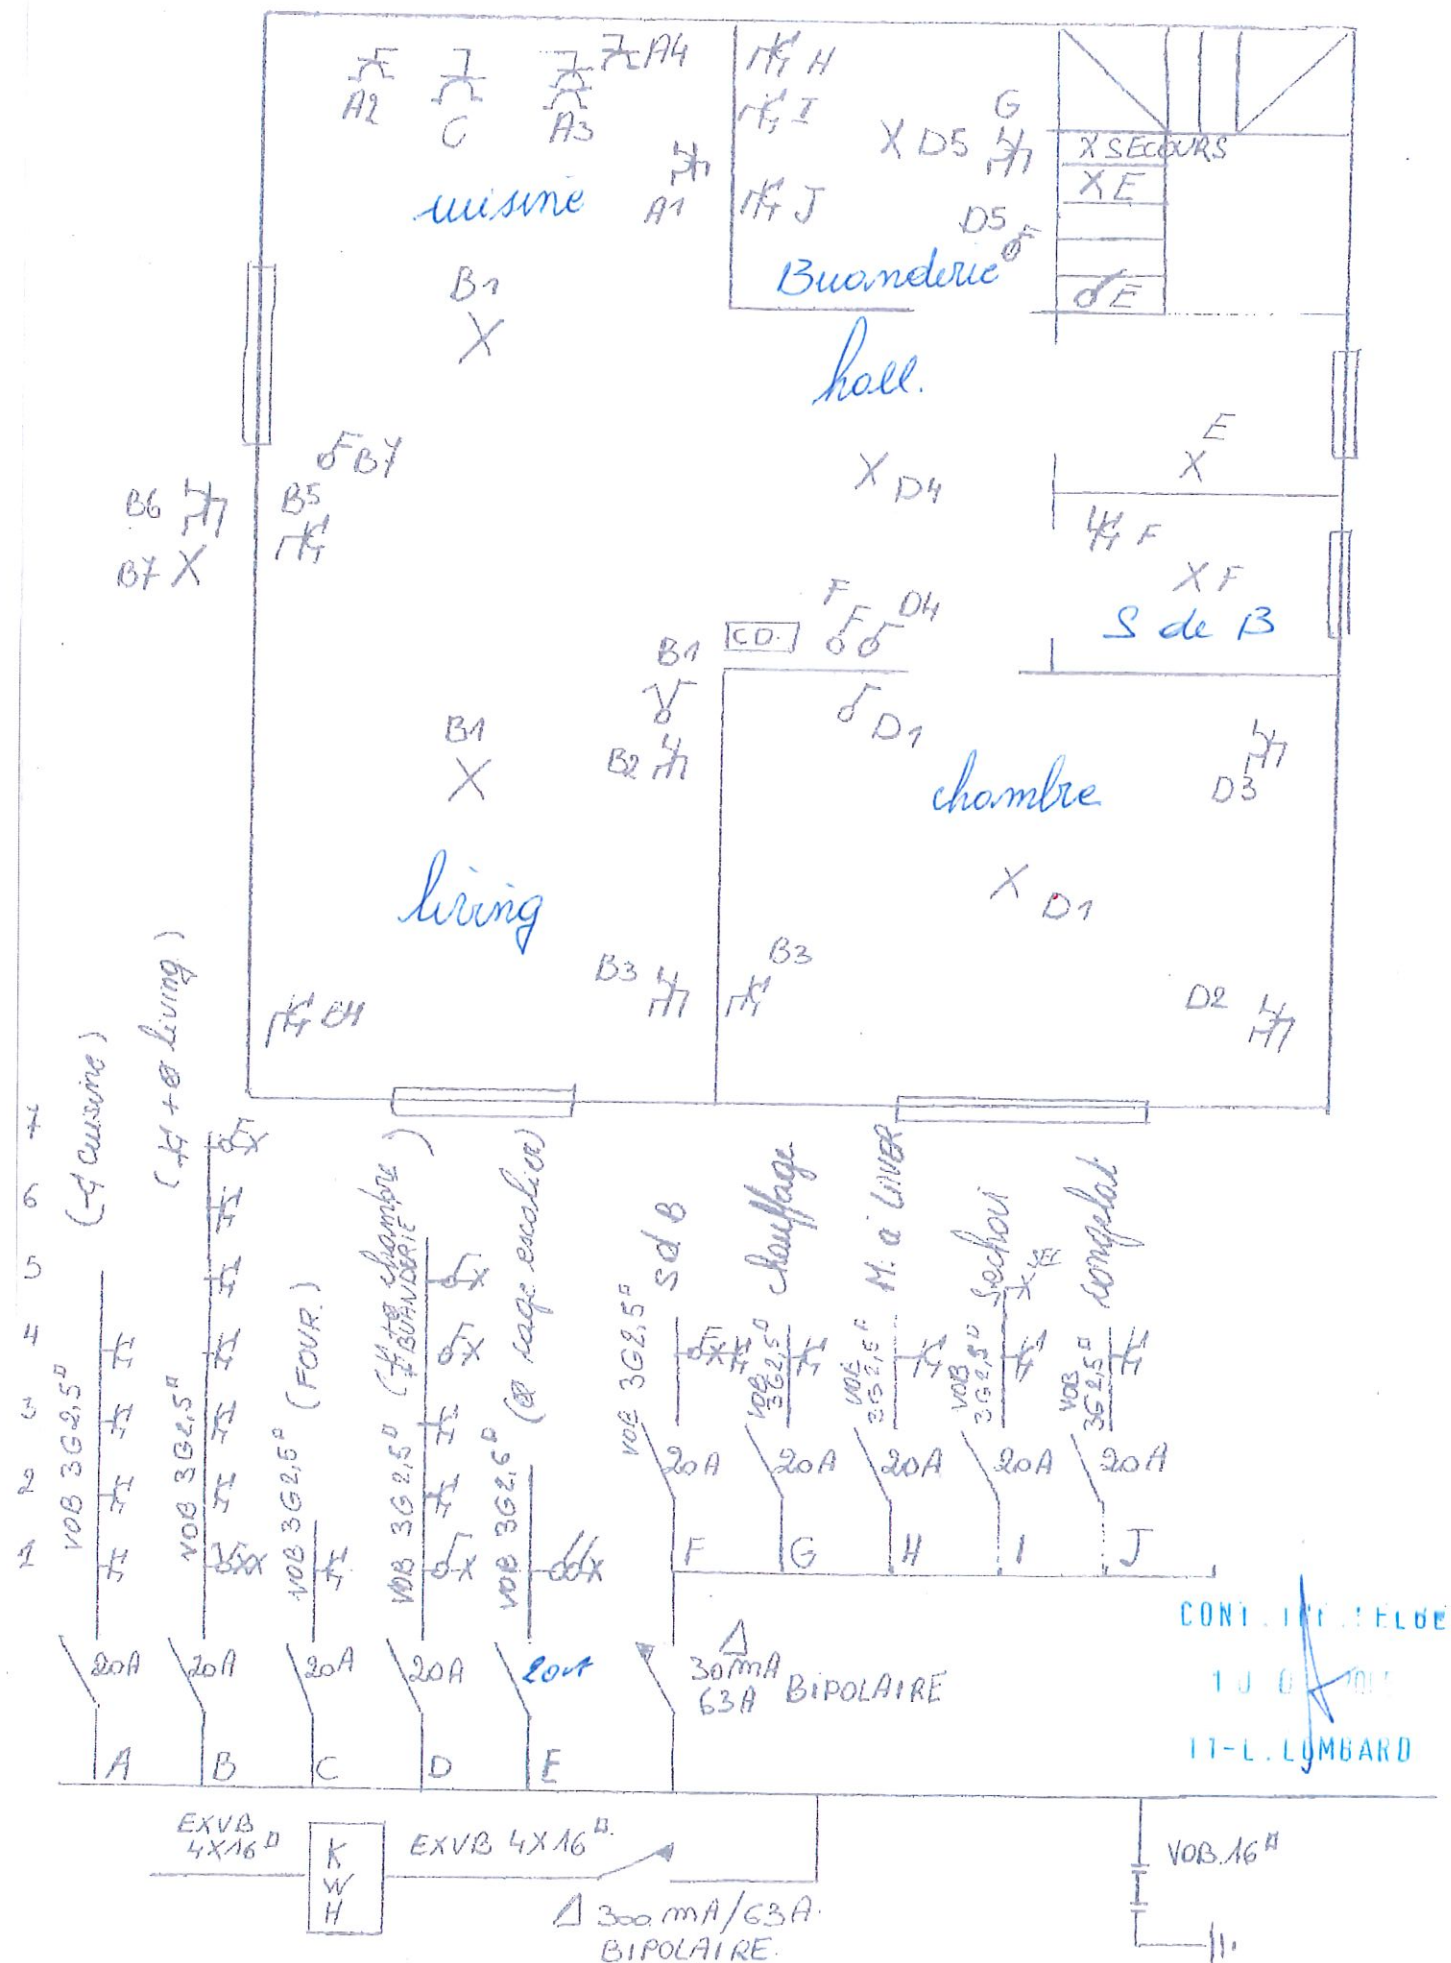 A4
H
A2
C
A3
I
G
X D5
X SECOURS
X E
cuisine
A1
J
D5
Buanderie
E
B1
X
hall.
B7
E
X
X D4
B6
B5
F
B7 X
X F
F
D4
S de B
C.D.
B1
D1
B1
X
B2
chambre
D3
X D1
living
B3
B3
D2
7
6
5
4
3
2
1
VOB 3G2,5¤
(cuisine)
VOB 3G2,5¤
(+ living)
VOB 3G2,5¤
(FOUR.)
VOB 3G2,5¤
(chambre)
BUANDERIE
VOB 3G2,5¤
(cage escalier)
VOB 3G2,5¤
S d B
VOB 3G2,5¤
chauffage
VOB 3G2,5¤
VOB 3G2,5¤
VOB 3G2,5¤
20A
20A
20A
20A
20A
F
G
H
I
J
20A
20A
20A
20A
20A
Δ
30mA
63A BIPOLAIRE
A
B
C
D
E
IT-L.LOMBARD
EXVB
4X16¤
K
W
H
EXVB 4X16¤.
Δ 300mA/63A.
BIPOLAIRE.
VOB.16¤